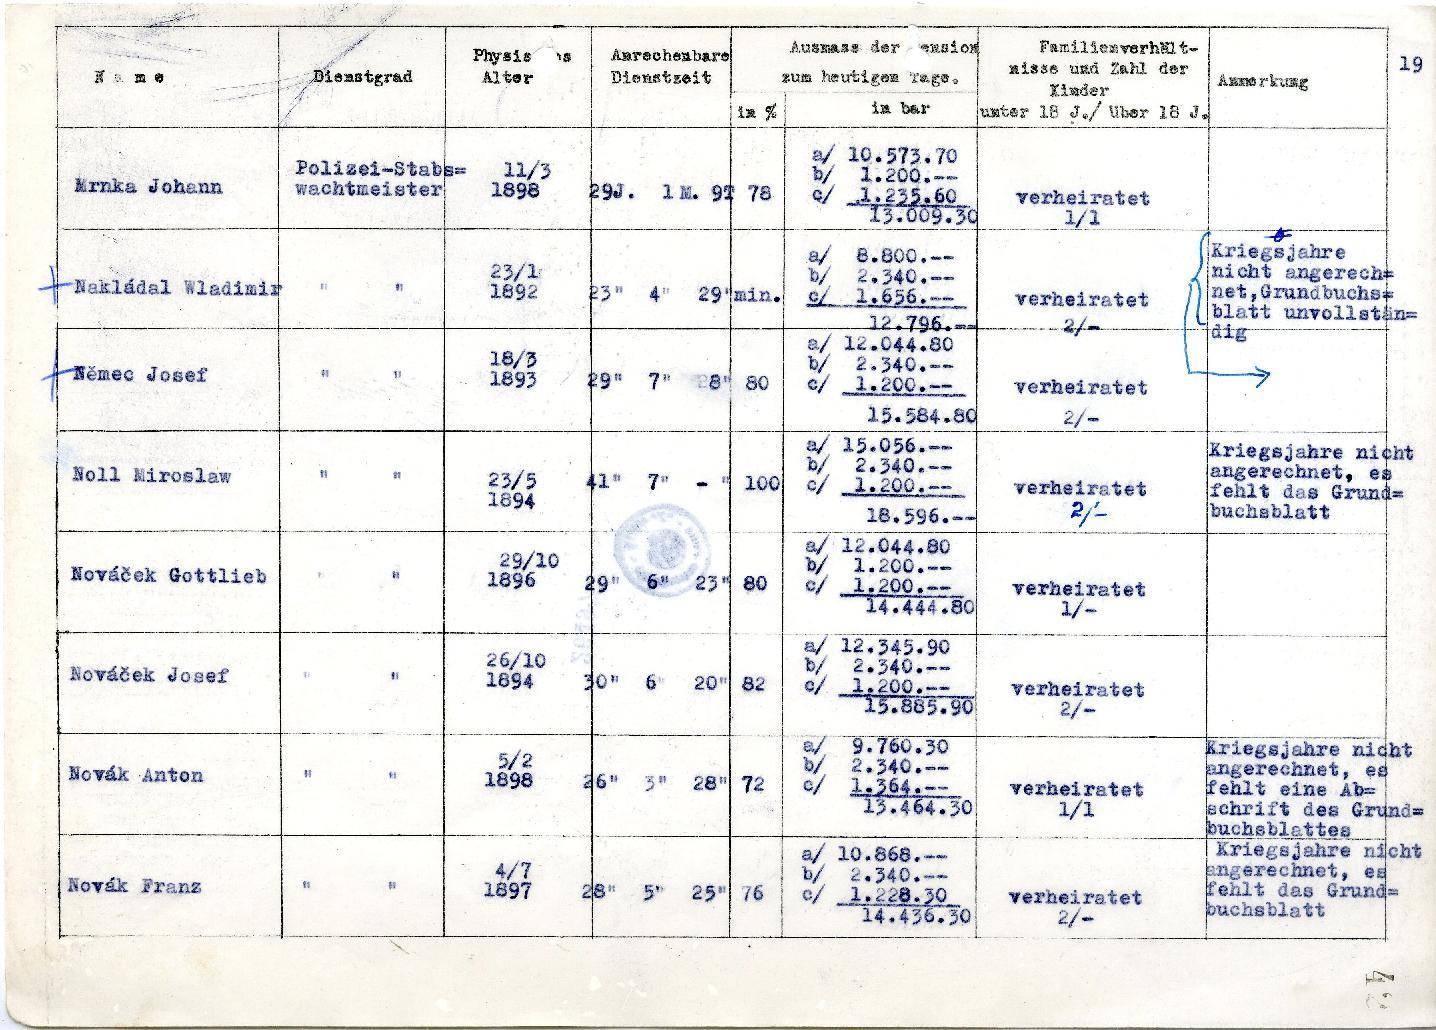 19
Name
Dienstgrad
Alter
Anrechenbare
Dienstzeit
Ausmass der
zum heutigen Tage.
in %
in bar
Familienverhält-
nisse und Zahl der
Kinder
unter 18 J./ Über 18 J.
Anmerkung
Mrnka Johann
Polizei-Stabs=
wachtmeister
11/3
1898
29J. 1 M. 9T
78
a/ 10.573.70
b/ 1.200.--
c/ 1.235.60
13.009.30
verheiratet
1/1
Nakládal Wladimir
" "
23/1
1892
23" 4" 29"
min.
a/ 8.800.--
b/ 2.340.--
c/ 1.656.--
12.796.--
verheiratet
2/-
Kriegsjahre
nicht angerech=
net,Grundbuchs=
blatt unvollstän=
dig
Němec Josef
" "
18/3
1893
29" 7" 28"
80
a/ 12.044.80
b/ 2.340.--
c/ 1.200.--
15.584.80
verheiratet
2/-
Noll Miroslaw
" "
23/5
1894
41" 7" - "
100
a/ 15.056.--
b/ 2.340.--
c/ 1.200.--
18.596.--
verheiratet
2/-
Kriegsjahre nicht
angerechnet, es
fehlt das Grund=
buchsblatt
Nováček Gottlieb
" "
29/10
1896
29" 6" 23"
80
a/ 12.044.80
b/ 1.200.--
c/ 1.200.--
14.444.80
verheiratet
1/-
Nováček Josef
" "
26/10
1894
30" 6" 20"
82
a/ 12.345.90
b/ 2.340.--
c/ 1.200.--
15.885.90
verheiratet
2/-
Novák Anton
" "
5/2
1898
26" 3" 28"
72
a/ 9.760.30
b/ 2.340.--
c/ 1.364.--
13.464.30
verheiratet
1/1
Kriegsjahre nicht
angerechnet, es
fehlt eine Ab=
schrift des Grund=
buchsblattes
Novák Franz
" "
4/7
1897
28" 5" 25"
76
a/ 10.868.--
b/ 2.340.--
c/ 1.228.30
14.436.30
verheiratet
2/-
Kriegsjahre nicht
angerechnet, es
fehlt das Grund=
buchsblatt